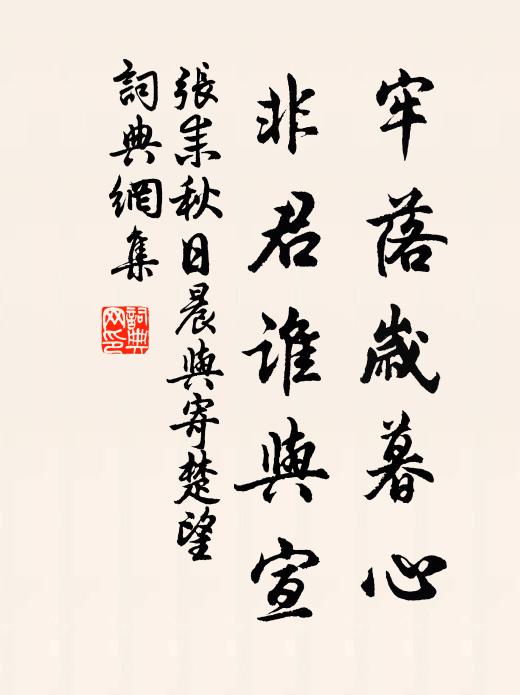 牢落歲暮心
非君誰與宣
張耒秋日晨興寄楚望
詞典網集
詞典網印